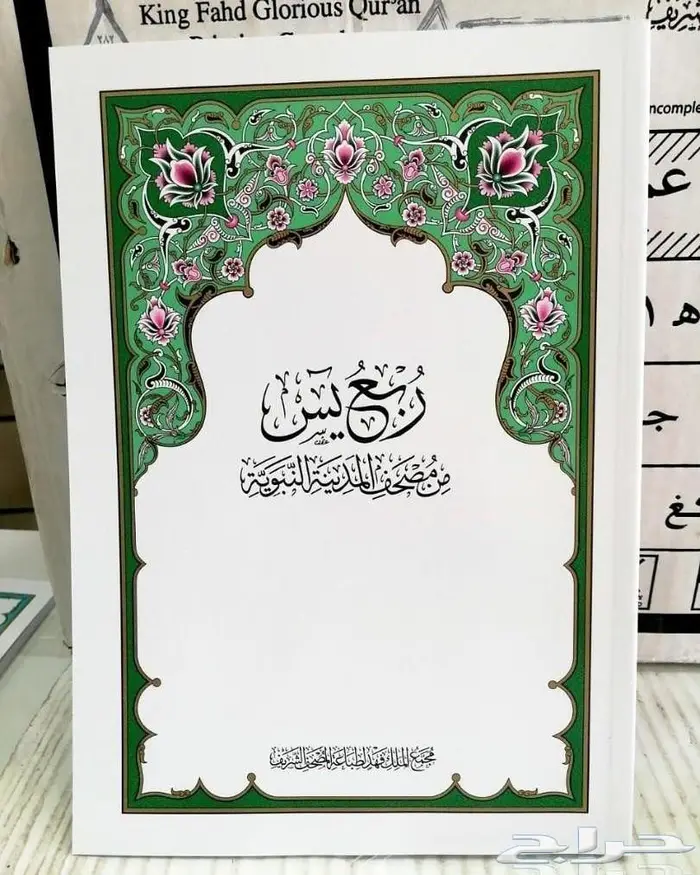 King Fahd Glorious Qur'an
٢٨٢
رُبْعُ يٓسٓ
مِن مُصْحَفِ المَدِينَةِ النَّبَوِيَّةِ
مُجَمَّع المَلِك فَهْد لِطِبَاعَةِ المُصْحَفِ الشَّرِيفِ
حراج